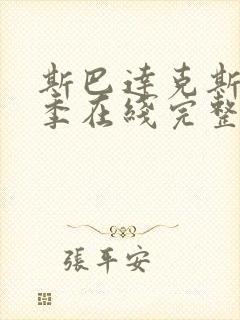 斯巴達克斯
季在綫完整
張平安